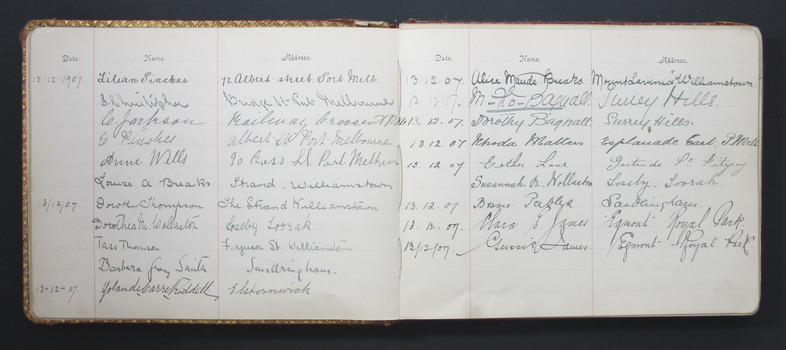 Date. Name. Address.
13-12-1907 Lilian Pinches 72 Albert street. Port Melb.
S. Christopher Bridge St. Port Melbourne
C Jackson Railway Crescent
E Pinches Albert St Port Melbourne
Anne Wells 90 Ross St Port Melbourne
Louie A Breaks Strand. Williamstown
13/12/07 Doroth Thompson The Strand Williamstown
Dorothea M. Wollaston Loseby Toorak
Tass Thomson Ferguson St. Williamstown
Barbara Gray Smith Sandringham.
13-12-07. Yolande Carre Riddell, Elsternwick
Date. Name. Address.
13.12.07. Alice Maude Breaks Mount Lavinia Williamstown
M Bagnall. Surrey Hills.
13.12.07. Dorothy Bagnall. Surrey Hills.
13.12.07 Rhoda Watters Esplanade East. P. Melb
13.12.07 Esther Lane Gertrude St. Fitzroy
Susannah M. Wollaston Loseby. Toorak.
13.12.07 Bessie Peebles
13.12.07. Clara E James "Egmont" Royal Park
13/12/07. James. "Egmont" Royal Park.